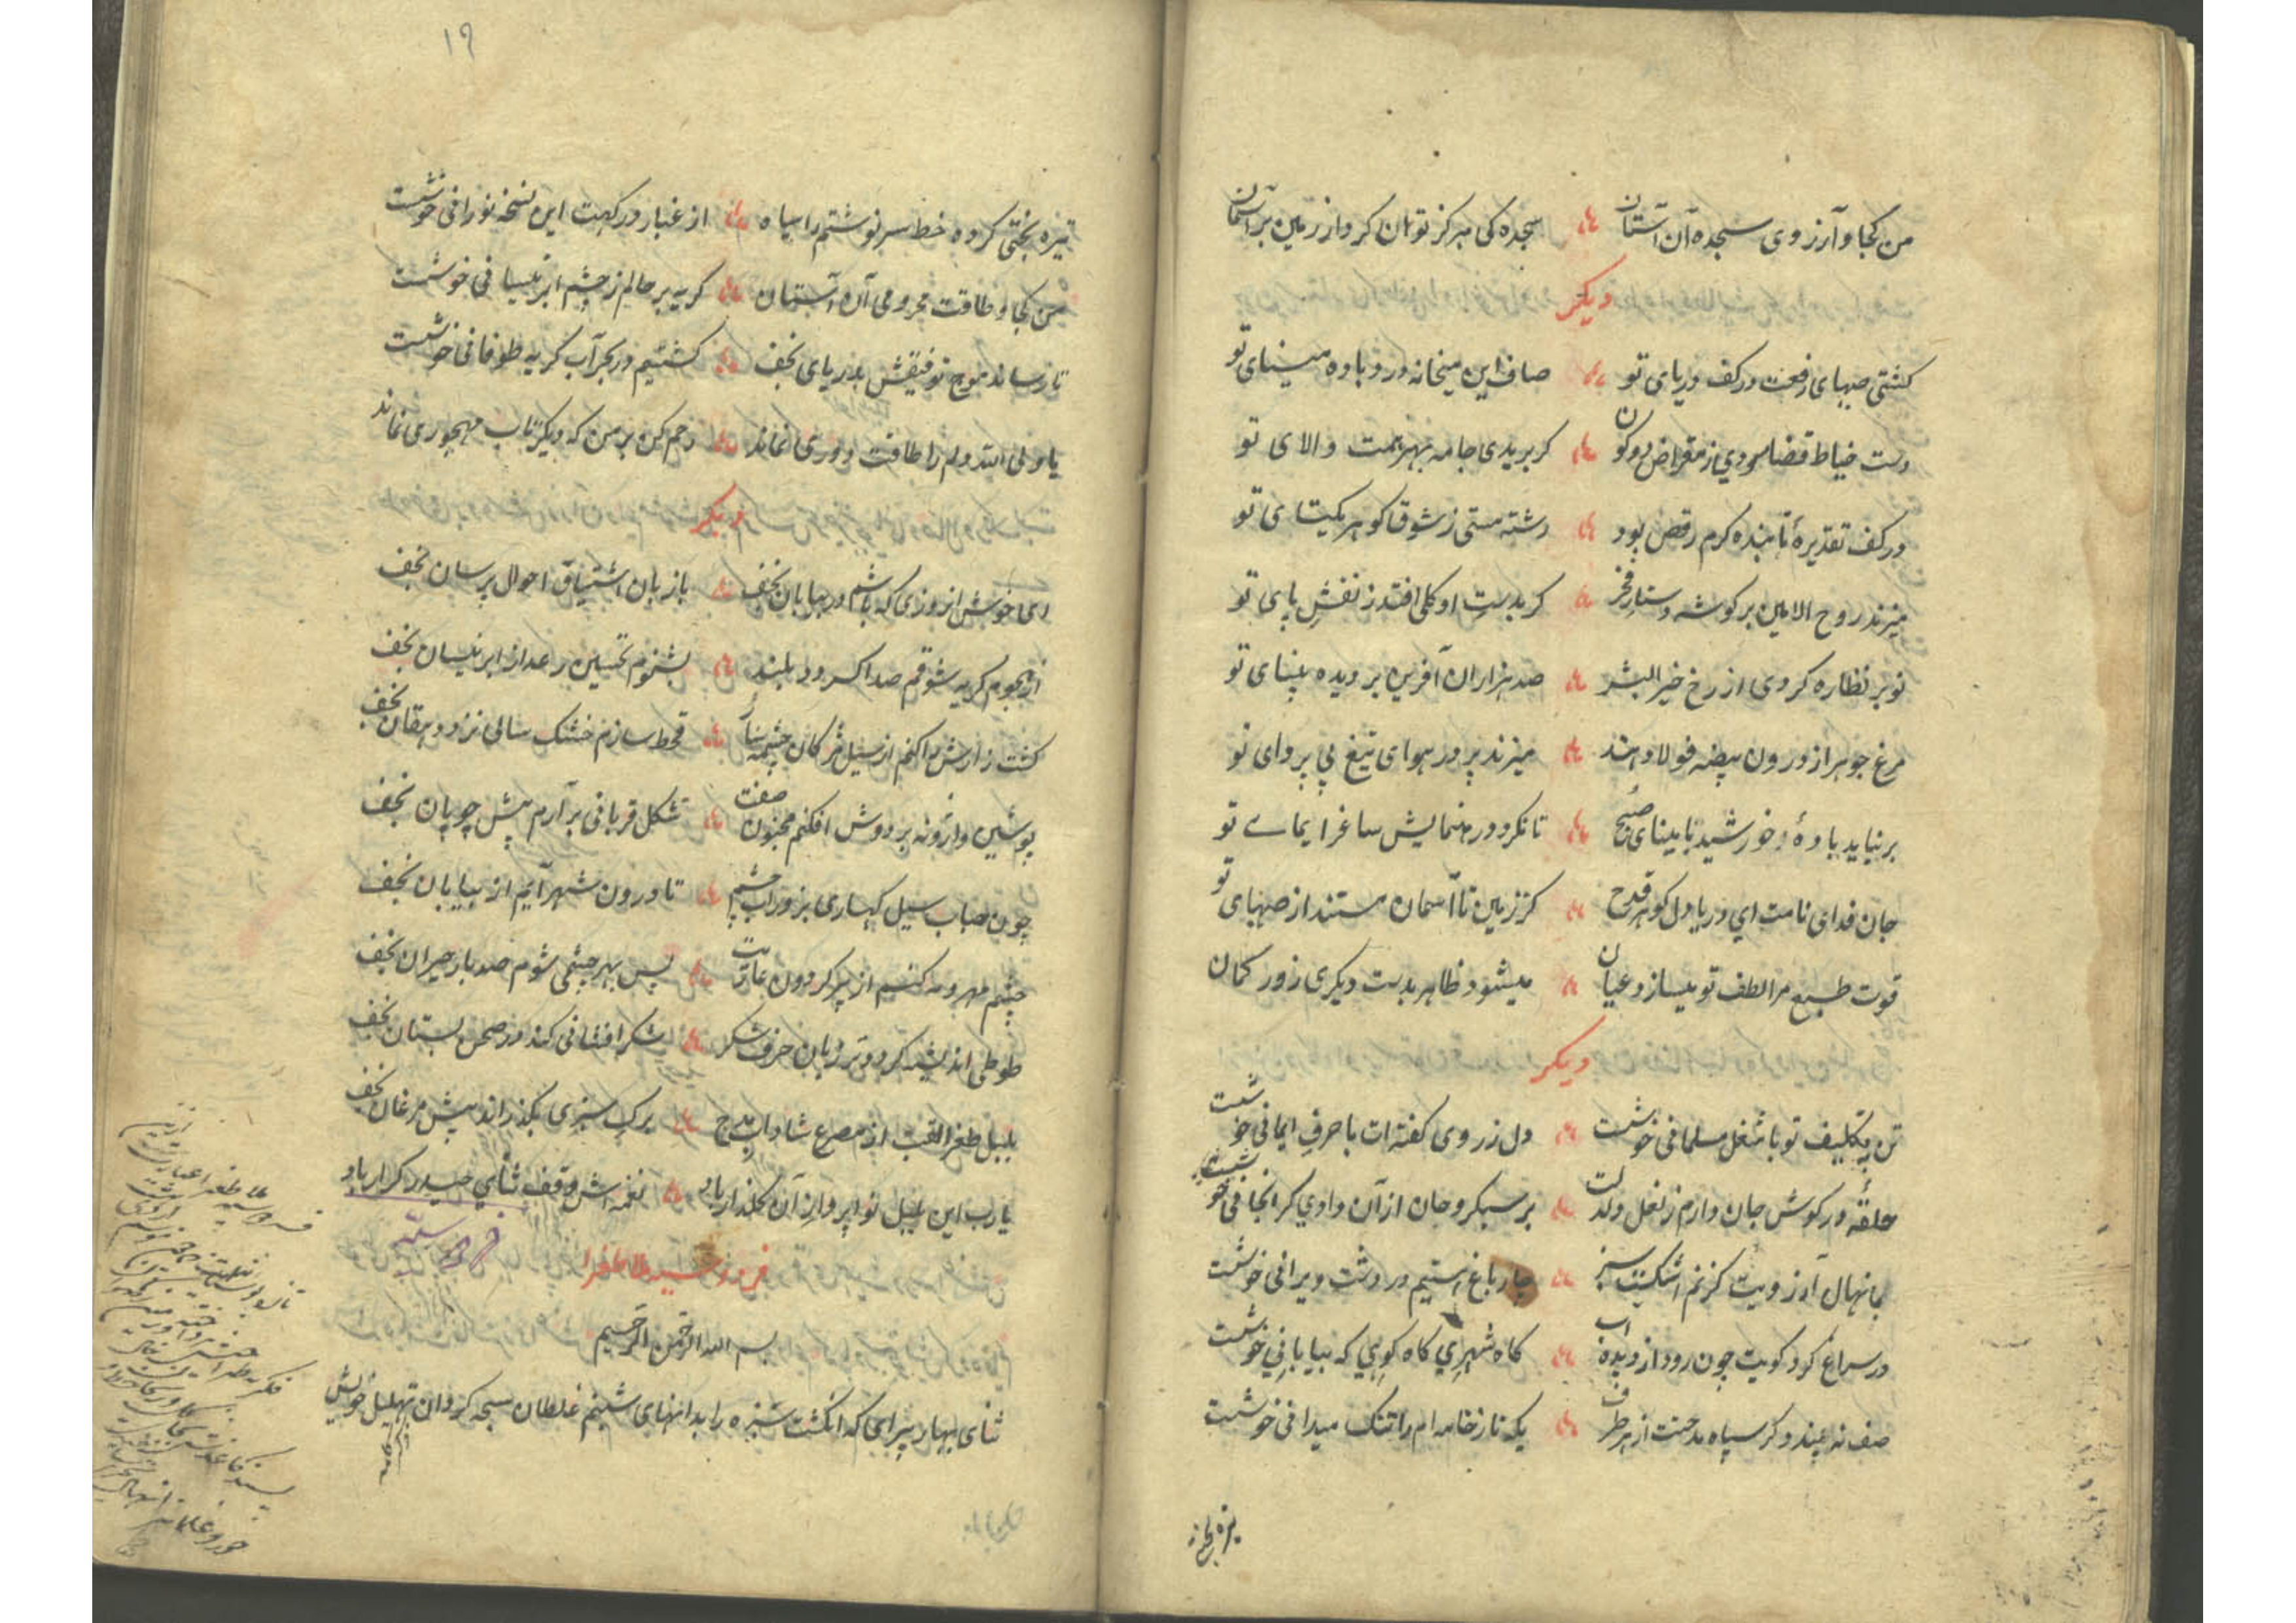 من کجا و آرزوی سجده آن آستان سجده کی هرکز توان کرد از زمین بر آسمان
دیکر
کشتی صهبای رفعت در کف دریای تو صاف این میخانه درد باده مینای تو
دست خیاط قضا سودی ز مقراض دو کون کر بریدی جامه بهر همت والای تو
در کف تقدیر تابنده کرم رقص بود رشته هستی ز شوق کوهر یکتای تو
میزند روح الامین بر کوشه دستار فخر کر بدست او کلی افتد ز نقش پای تو
تو بر نظاره کردی از رخ خیر البشر صد هزاران آفرین بر دیده بینای تو
مرغ جوهر از درون بیضه فولاد هند میزند پر در هوای تیغ بی پروای تو
بر نیاید باده خورشید تا مینای صبح تا نکردد رهنمایش ساغر ایمای تو
جان فدای نامت ای دریا دل کوهر قدح کز زمین تا آسمان مستند از صهبای تو
قوت طبع مرا لطف تو میسازد عیان میشود ظاهر بدست دیکری زور کمان
دیکر
تن به تکلیف تو با شغل مسلمانی خوشست دل ز روی کفته ات با حرف ایمانی خوشست
حلقه در کوش جان دارم ز نعل دلدلت بر سبکروحان از آن وادی کرانجانی خوشست
با نهال آرزویت کز نم اشکست سبز چار باغ هستیم در دشت ویرانی خوشست
در سراغ کرد کویت چون رود از دیده آب کاه شهری کاه کوهی که بیابانی خوشست
صف نه بندد کر سپاه مدحتت از هر طرف یکه تاز خامه ام را تنک میدانی خوشست
تیره بختی
۱۹
تیره بختی کرده خط سرنوشتم را سیاه از غبار درکهت این نسخه نورانی خوشست
من کجا و طاقت محرومی آن آستان کریه بر حالم ز چشم ابر نیسانی خوشست
تا رساند موج توفیقش بدریای نجف کشتیم در بحر آب کریه طوفانی خوشست
یا ولی الله دلم را طاقت دوری نماند رحم کن بر من که دیکر تاب مهجوری نماند
دیکر
ای خوش آنروزی که باشم در بیابان نجف با زبان اشتیاق احوال پرسان نجف
از هجوم کریه شوقم صدا کردد بلند بشنوم تحسین رعد از ابر نیسان نجف
کشت زارش را کنم از سیل مژکان چشمه سار قحط سازم خشک سالی نزد دهقان نجف
پوستین واژونه بر دوش افکنم مجنون صفت شکل قربانی برآرم پیش چوپان نجف
چون حباب سیل کهساری بزور آب چشم تا درون شهر آیم از بیابان نجف
چشم مهر و مه کنم از پیر کردون عاریت پس بهر چشمی شوم صد بار حیران نجف
طوطی اندیشه کردد تر زبان حرف شکر شکر افشانی کند در صحن بستان نجف
بلبل طغرا لقب از مصرع شاداب مدح برک سبزی بگذراند پیش مرغان نجف
یارب این بلبل نوا پرواز آن کلزار باد نغمه اش وقف ثنای حیدر کرار باد
فردوسیه
فردوسیه ملا طغرا
بسم الله الرحمن الرحیم
ثنای بهار پیرای که انکشت سبزه را بدانهای شبنم غلطان سبحه کردان تهلیل خویش